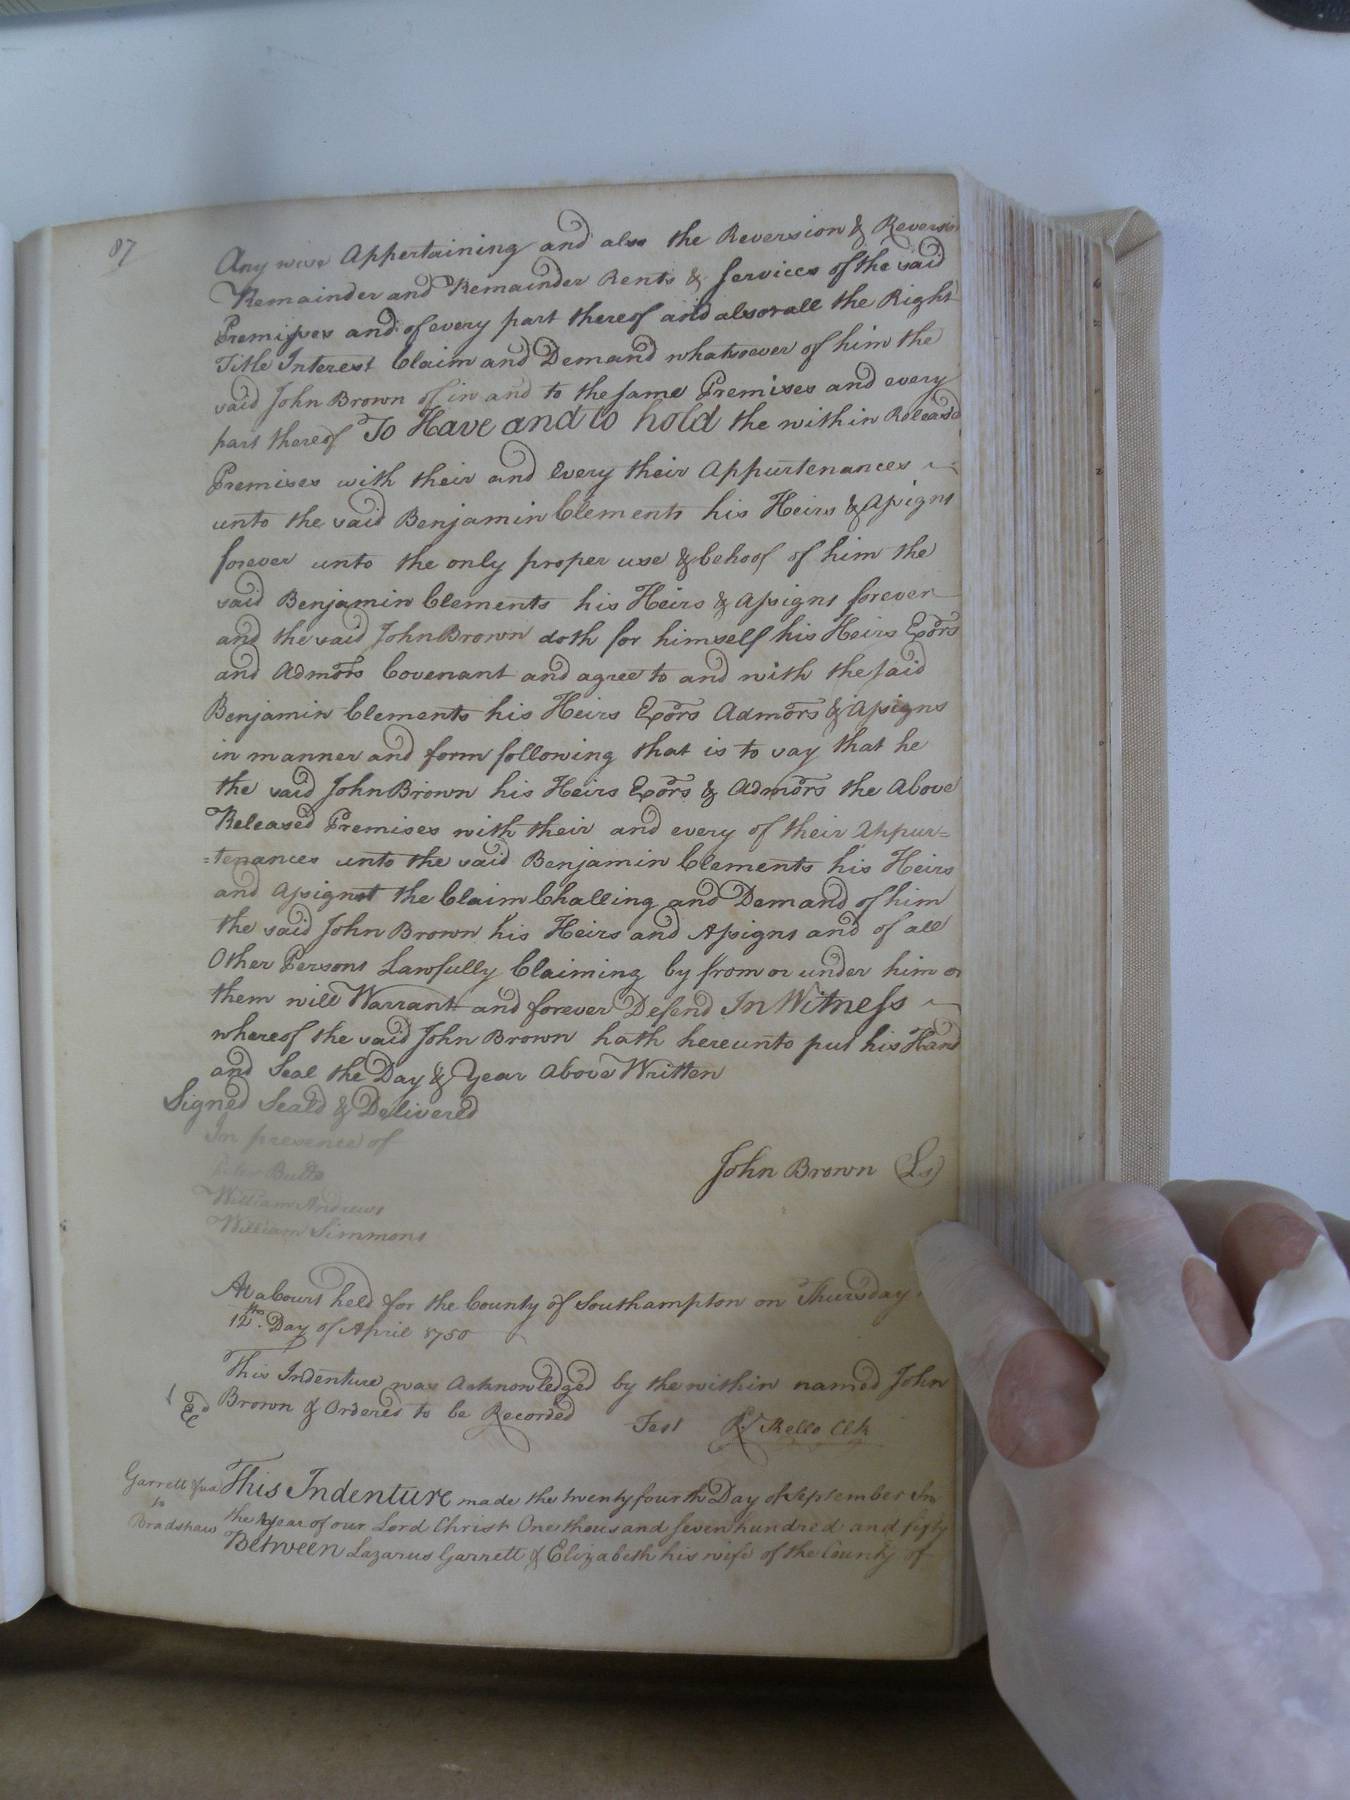 87
Any wise Appertaining and also the Reversion & Reversion
Remainder and Remainder Rents & Services of the said
Premisses and of every part thereof and also all the Right
Title Interest Claim and Demand whatsoever of him the
said John Brown of in and to the same Premises and every
part thereof To Have and to hold the within Released
Premises with their and Every their Appurtenances
unto the said Benjamin Clements his Heirs & Assigns
forever unto the only proper use & behoof of him the
said Benjamin Clements his Heirs & Assigns forever
and the said John Brown doth for himself his Heirs Exors
and Admors Covenant and agree to and with the said
Benjamin Clements his Heirs Exors Admors & Assigns
in manner and form following that is to say that he
the said John Brown his Heirs Exors & Admors the Above
Released Premises with their and every of their Appur=
=tenances unto the said Benjamin Clements his Heirs
and Assigns the Claim Challing and Demand of him
the said John Brown his Heirs and Assigns and of all
Other Persons Lawfully Claiming by from or under him or
them will Warrant and forever Defend In Witness
whereof the said John Brown hath hereunto put his Hand
and Seal the Day & Year Above Written
Signed Seald & Delivered
In presence of
Butts
William Andrews
William Simmons
John Brown (Ls)
At a Court held for the County of Southampton on Thursday
12th. Day of April 1750
This Indenture was Acknowledged by the within named John
Brown & Ordered to be Recorded Test Rd Kello Clk
Ed
Garrett &ux
to
Bradshaw
This Indenture made the twenty fourth Day of September In
the year of our Lord Christ One thousand seven hundred and fifty
Between Lazarus Garrett & Elizabeth his wife of the County of